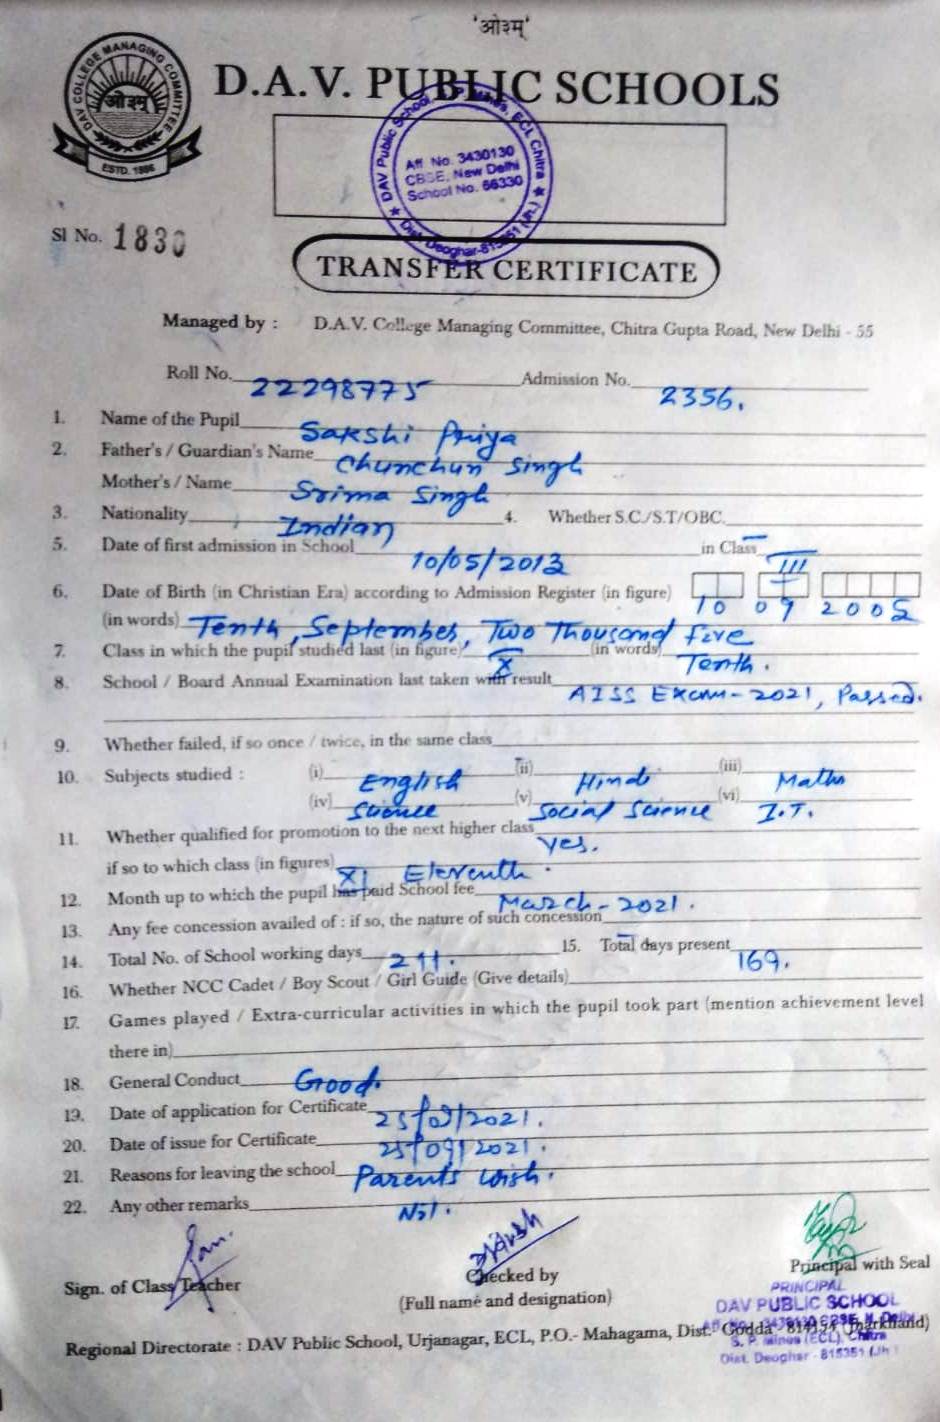 'ओ३म्'
DAV COLLEGE MANAGING COMMITTEE
ओ३म्
ESTD. 1886
D.A.V. PUBLIC SCHOOLS
DAV Public School, Mines, ECL Chitra
Aff No. 3430130
CBSE, New Delhi
School No. 66330
Dist. Deoghar-815351 (Jh.)
Sl No. 1830
TRANSFER CERTIFICATE
Managed by : D.A.V. College Managing Committee, Chitra Gupta Road, New Delhi - 55
Roll No. 22298775 Admission No. 2356.
1. Name of the Pupil Sakshi Priya
2. Father's / Guardian's Name Chunchun Singh
Mother's / Name Srima Singh
3. Nationality Indian 4. Whether S.C./S.T/OBC. —
5. Date of first admission in School 10/05/2013 in Class III
6. Date of Birth (in Christian Era) according to Admission Register (in figure) 10 09 2005
(in words) Tenth, September, Two Thousand Five
7. Class in which the pupil studied last (in figure) X (in words) Tenth.
8. School / Board Annual Examination last taken with result AISS Exam-2021, Passed.
9. Whether failed, if so once / twice, in the same class
10. Subjects studied : (i) English (ii) Hindi (iii) Maths
(iv) Science (v) Social Science (vi) I.T.
11. Whether qualified for promotion to the next higher class Yes.
if so to which class (in figures) XI Eleventh.
12. Month up to which the pupil has paid School fee March-2021.
13. Any fee concession availed of : if so, the nature of such concession —
14. Total No. of School working days 211. 15. Total days present 169.
16. Whether NCC Cadet / Boy Scout / Girl Guide (Give details)
17. Games played / Extra-curricular activities in which the pupil took part (mention achievement level
there in)
18. General Conduct Good.
19. Date of application for Certificate 25/09/2021.
20. Date of issue for Certificate 25/09/2021.
21. Reasons for leaving the school Parents Wish.
22. Any other remarks Nil.
Sign. of Class Teacher
Checked by
(Full name and designation)
Principal with Seal
PRINCIPAL
DAV PUBLIC SCHOOL
Regional Directorate : DAV Public School, Urjanagar, ECL, P.O.- Mahagama, Dist.- Godda - 814154 (Jharkhand)
S. P. Mines (ECL), Chitra
Dist. Deoghar - 815351 (Jh.)